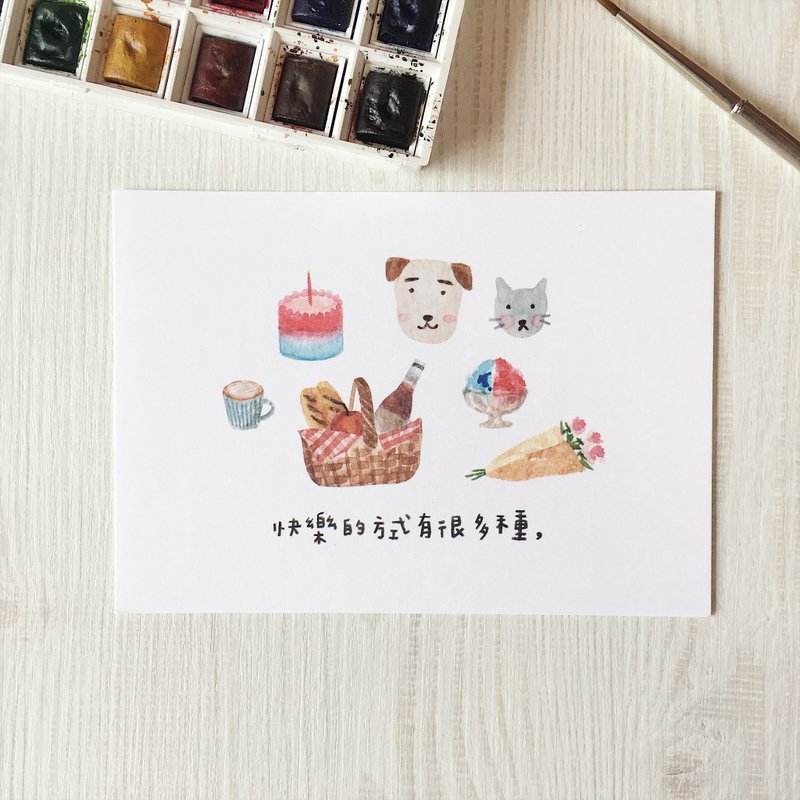 快樂的方式有很多種，